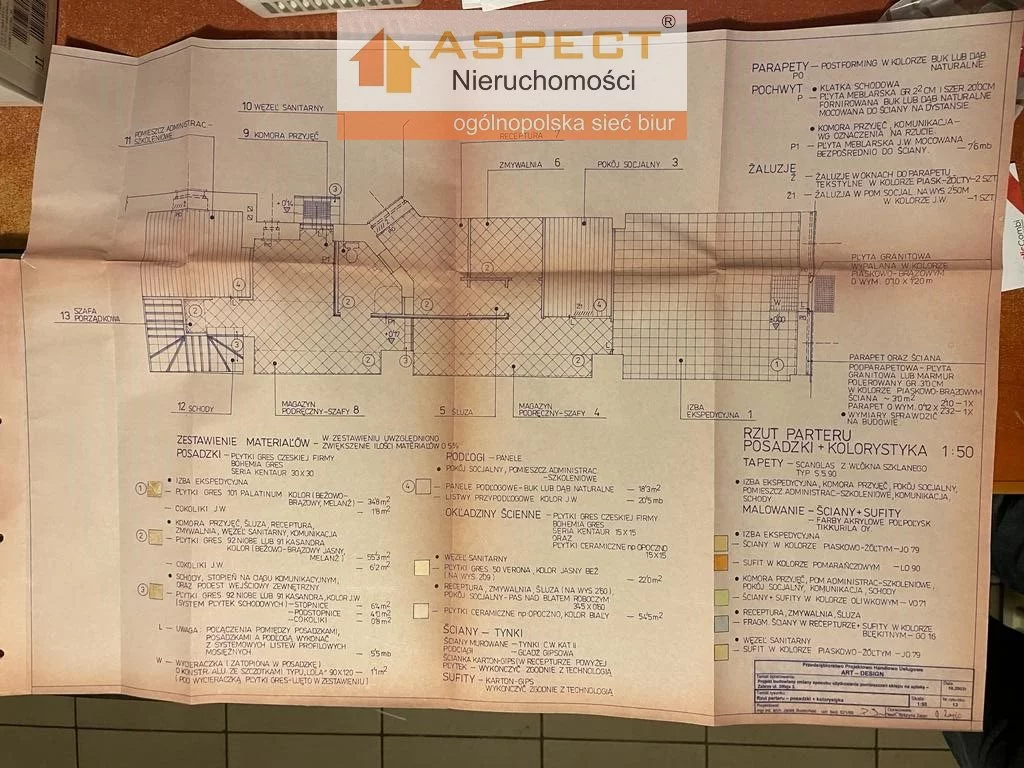 ASPECT ®
Nieruchomości
ogólnopolska sieć biur
10 WĘZEŁ SANITARNY
9 KOMORA PRZYJĘĆ
11 POMIESZCZ. ADMINISTRAC-
SZKOLENIOWE
RECEPTURA 7
ZMYWALNIA 6
POKÓJ SOCJALNY 3
13 SZAFA
PORZĄDKOWA
12 SCHODY
MAGAZYN
PODRĘCZNY-SZAFY 8
5 ŚLUZA
MAGAZYN
PODRĘCZNY-SZAFY 4
IZBA
EKSPEDYCYJNA 1
PARAPETY — POSTFORMING W KOLORZE BUK LUB DĄB
PO NATURALNE.
POCHWYT • KLATKA SCHODOWA
P — PŁYTA MEBLARSKA GR 2'2 CM I SZER. 20'0CM
FORNIROWANA BUK LUB DĄB NATURALNE
MOCOWANA DO ŚCIANY NA DYSTANSIE.
• KOMORA PRZYJĘĆ, KOMUNIKACJA-
WG OZNACZENIA NA RZUCIE.
P1 — PŁYTA MEBLARSKA J.W. MOCOWANA
BEZPOŚREDNIO DO ŚCIANY. — 7'6 mb
ŻALUZJE
Ż — ŻALUZJE W OKNACH DO PARAPETU
TEKSTYLNE W KOLORZE PIASK-ŻÓŁTY-2 SZT.
Ż1 — ŻALUZJA W POM. SOCJAL. NA WYS. 2.50M
W KOLORZE J.W. — 1 SZT.
PŁYTA GRANITOWA
WYPALANA W KOLORZE
PIASKOWO-BRĄZOWYM
O WYM. 0'10 X 1'20 m
PARAPET ORAZ ŚCIANA
PODPARAPETOWA-PŁYTA
GRANITOWA LUB MARMUR
POLEROWANY GR. 3'0CM
W KOLORZE PIASKOWO-BRĄZOWYM
ŚCIANA ~ 3'0 m²
PARAPET O WYM. 0'12 X 2'10 -1X
2'32-1X
• WYMIARY SPRAWDZIĆ
NA BUDOWIE.
ZESTAWIENIE MATERIAŁÓW — W ZESTAWIENIU UWZGLĘDNIONO
ZWIĘKSZENIE ILOŚCI MATERIAŁÓW O 5%
POSADZKI — PŁYTKI GRES CZESKIEJ FIRMY
BOHEMIA GRES
SERIA KENTAUR 30 X 30
1 • IZBA EKSPEDYCYJNA
— PŁYTKI GRES 101 PALATINUM KOLOR (BEŻOWO-
BRĄZOWY, MELANŻ) — 34'8 m²
— COKOLIKI J.W. — 1'8 m²
2 • KOMORA PRZYJĘĆ, ŚLUZA, RECEPTURA,
ZMYWALNIA, WĘZEŁ SANITARNY, KOMUNIKACJA
— PŁYTKI GRES 92 NIOBE LUB 91 KASANDRA
KOLOR (BEŻOWO-BRĄZOWY JASNY,
MELANŻ) — 55'3 m²
— COKOLIKI J.W. — 6'2 m²
3 • SCHODY, STOPIEŃ NA CIĄGU KOMUNIKACYJNYM,
ORAZ PODEST WEJŚCIOWY ZEWNĘTRZNY
— PŁYTKI GRES 92 NIOBE LUB 91 KASANDRA, KOLOR J.W.
(SYSTEM PŁYTEK SCHODOWYCH) — STOPNICE — 6'4 m²
— PODSTOPNICE — 4'0 m²
— COKOLIKI — 0'8 m²
L — UWAGA: POŁĄCZENIA POMIĘDZY POSADZKAMI,
POSADZKAMI A PODŁOGĄ WYKONAĆ
Z SYSTEMOWYCH LISTEW PROFILOWYCH
MOSIĘŻNYCH — 5'5 mb
W — WYCIERACZKA (ZATOPIONA W POSADZKĘ)
O KONSTR. ALU. ZE SZCZOTKAMI TYPU „LOLA" 90 X 120 — 1'1 m²
(POD WYCIERACZKĄ, PŁYTKI GRES-UJĘTO W ZESTAWIENIU)
PODŁOGI — PANELE
• POKÓJ SOCJALNY, POMIESZCZ. ADMINISTRAC.
-SZKOLENIOWE
4 — PANELE PODŁOGOWE-BUK LUB DĄB NATURALNE — 18'3 m²
— LISTWY PRZYPODŁOGOWE KOLOR J.W. — 20'5 mb
OKŁADZINY ŚCIENNE — PŁYTKI GRES CZESKIEJ FIRMY
BOHEMIA GRES
SERIA KENTAUR 15 X 15
ORAZ
PŁYTKI CERAMICZNE np OPOCZNO
15 X 15
• WĘZEŁ SANITARNY
— PŁYTKI GRES 50 VERONA, KOLOR JASNY BEŻ
(NA WYS. 2'09) — 22'0 m²
• RECEPTURA, ZMYWALNIA, ŚLUZA (NA WYS. 2'60),
POKÓJ SOCJALNY- PAS NAD BLATEM ROBOCZYM
3'45 x 0'60
— PŁYTKI CERAMICZNE np OPOCZNO, KOLOR BIAŁY — 54'5 m²
ŚCIANY — TYNKI
ŚCIANY MUROWANE — TYNKI C.W. KAT II
PODCIĄGI — GŁADŹ GIPSOWA
ŚCIANKA KARTON-GIPS (W RECEPTURZE POWYŻEJ
PŁYTEK — WYKOŃCZYĆ ZGODNIE Z TECHNOLOGIĄ
SUFITY — KARTON-GIPS
WYKOŃCZYĆ ZGODNIE Z TECHNOLOGIĄ
RZUT PARTERU
POSADZKI + KOLORYSTYKA 1:50
TAPETY — SCANGLAS Z WŁÓKNA SZKLANEGO
TYP S.5.90
• IZBA EKSPEDYCYJNA, KOMORA PRZYJĘĆ, POKÓJ SOCJALNY,
POMIESZCZ ADMINISTRAC-SZKOLENIOWE, KOMUNIKACJA,
SCHODY.
MALOWANIE — ŚCIANY + SUFITY
— FARBY AKRYLOWE PÓŁPOŁYSK
TIKKURILA OY.
• IZBA EKSPEDYCYJNA
— ŚCIANY W KOLORZE PIASKOWO-ŻÓŁTYM — JO 79
— SUFIT W KOLORZE POMARAŃCZOWYM — LO 90
• KOMORA PRZYJĘĆ, POM ADMINISTRAC-SZKOLENIOWE,
POKÓJ SOCJALNY, KOMUNIKACJA, SCHODY
— ŚCIANY + SUFITY W KOLORZE OLIWKOWYM — VO 71
• RECEPTURA, ZMYWALNIA, ŚLUZA
— FRAGM. ŚCIANY W RECEPTURZE + SUFITY W KOLORZE
BŁĘKITNYM — GO 16
• WĘZEŁ SANITARNY
— SUFIT W KOLORZE PIASKOWO-ŻÓŁTYM — JO 79
Przedsiębiorstwo Projektowo Handlowo Usługowe
ART – DESIGN
Rzut parteru – posadzki + kolorystyka
1:50
13